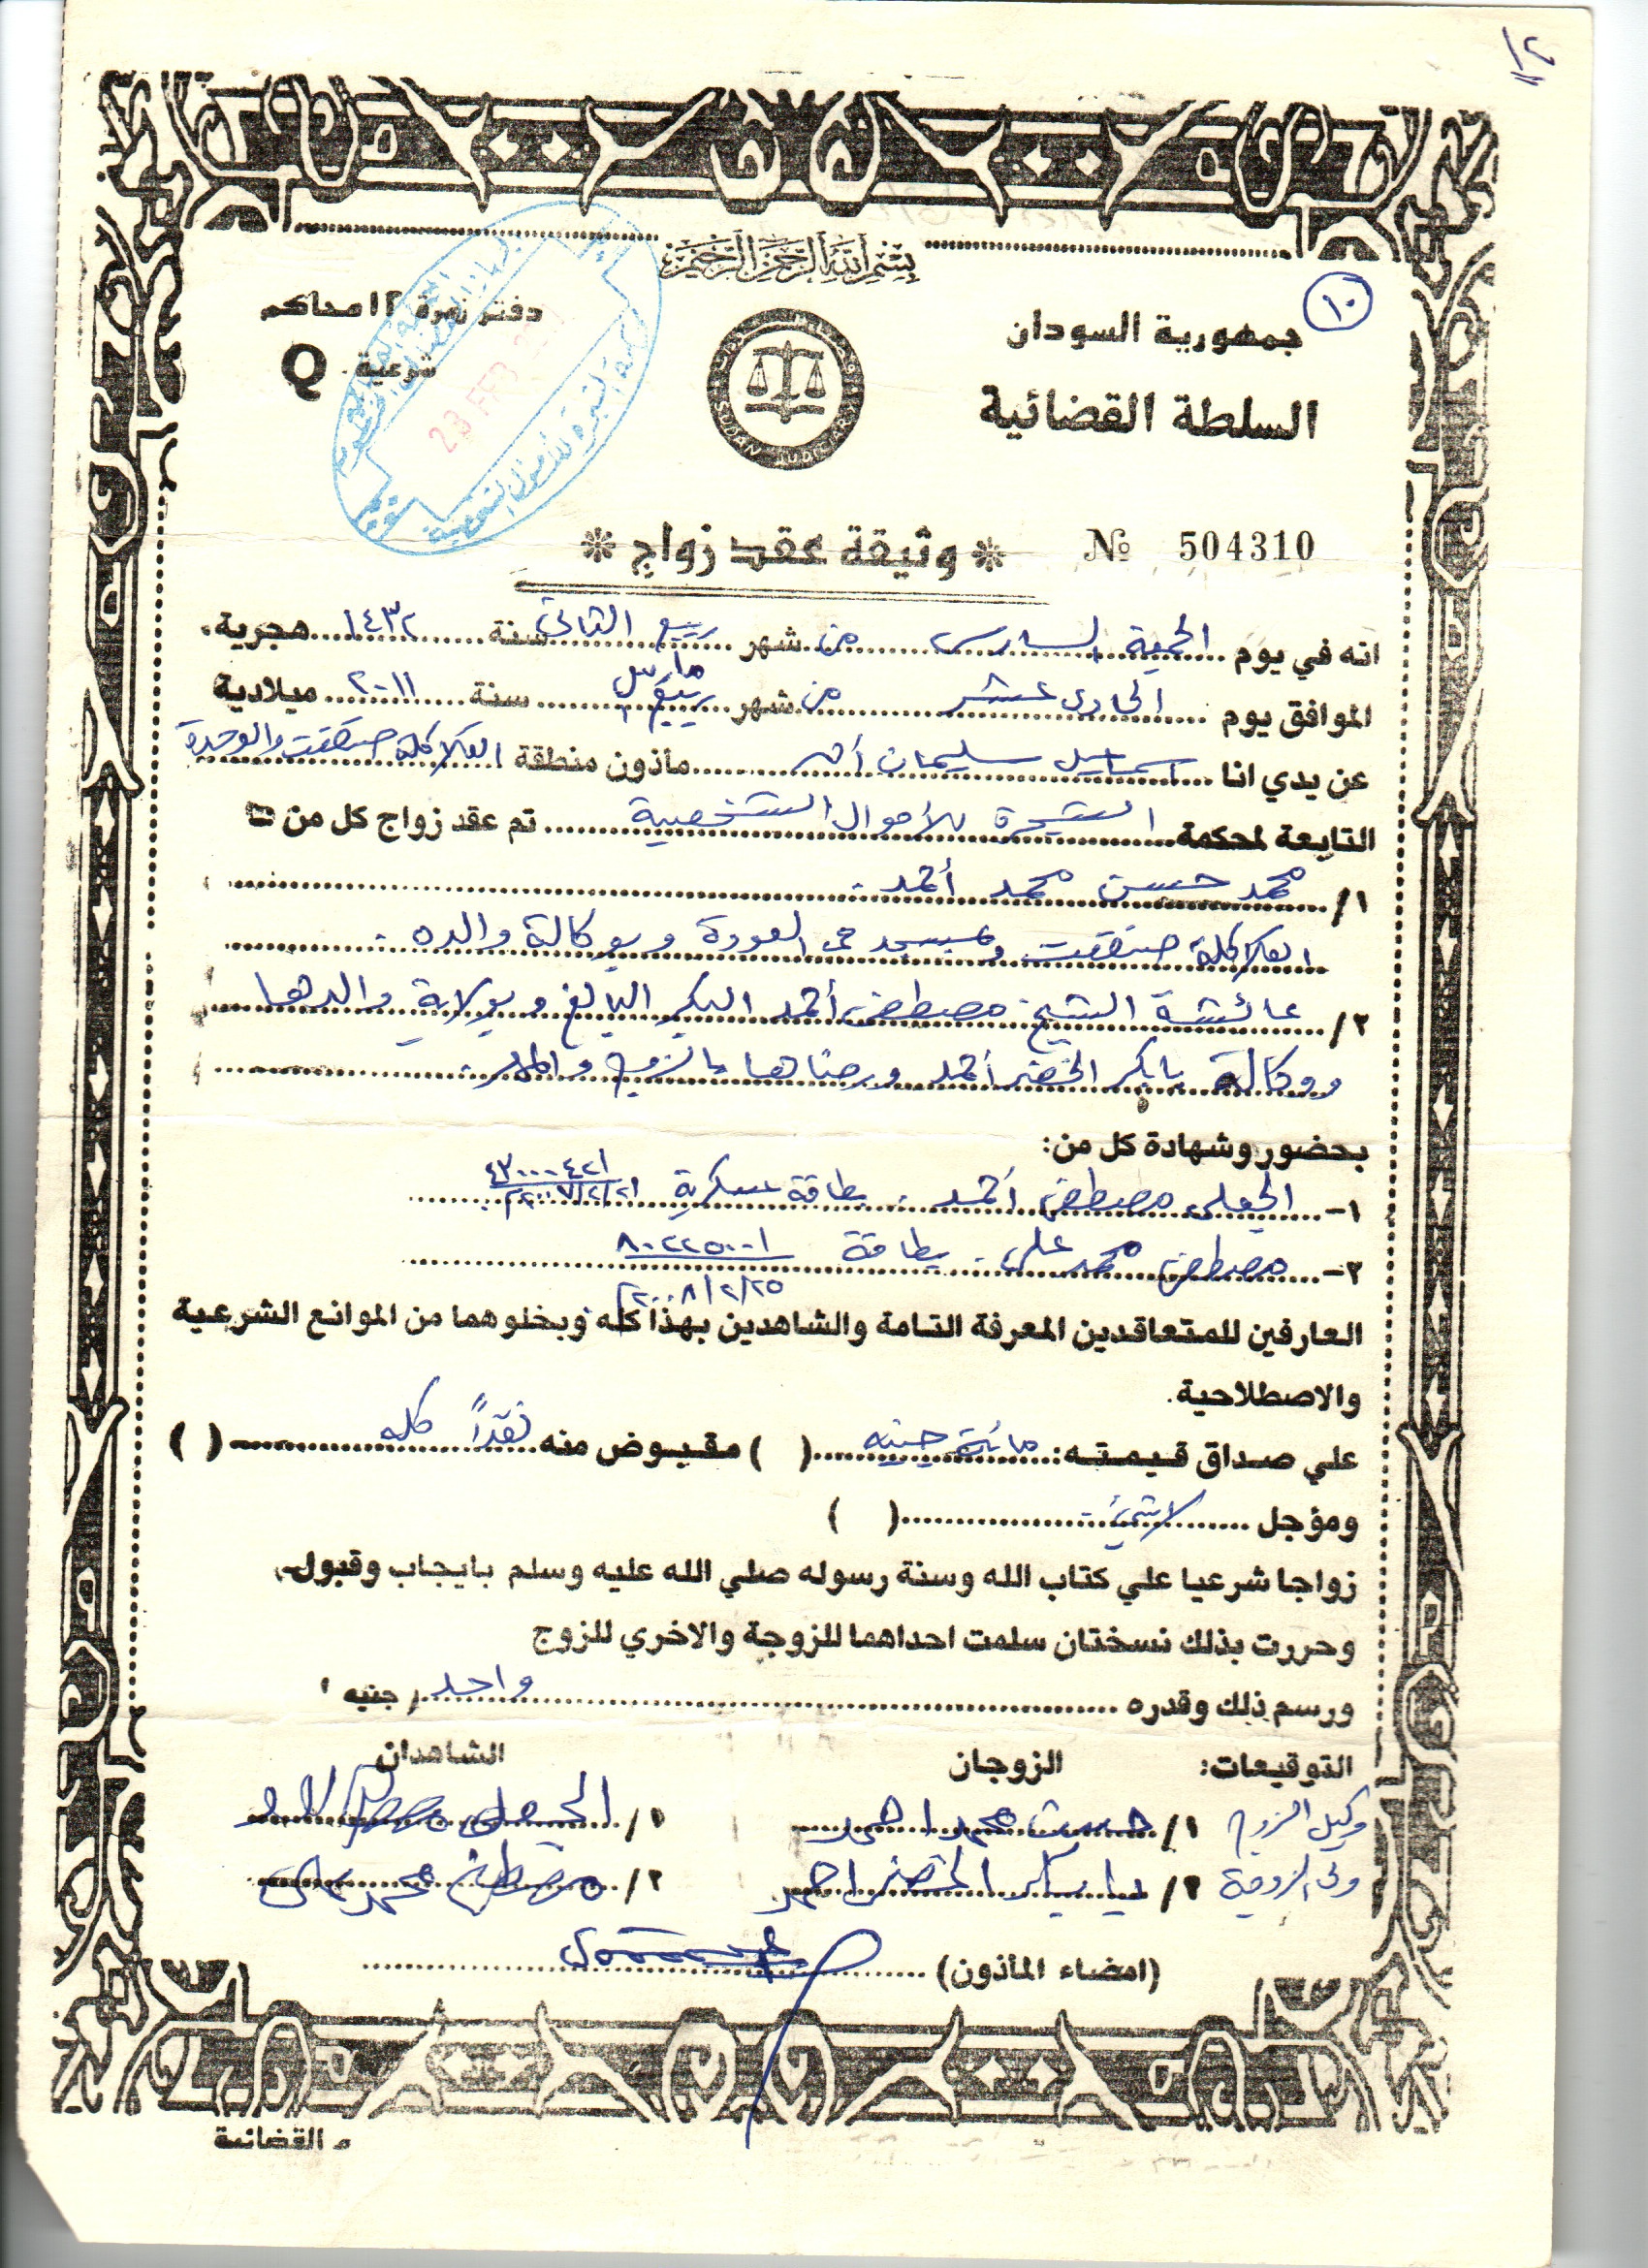 ١٠
بسم الله الرحمن الرحيم
جمهورية السودان
السلطة القضائية
دفتر نمرة ١٢ محاكم
شرعية Q
SUDAN JUDICIARY
23 FEB
للأحوال الشخصية
* وثيقة عقد زواج *
№ 504310
انه في يوم الجمعة السادس من شهر ربيع الثاني سنة ١٤٣٢ هجرية.
الموافق يوم الحادي عشر من شهر مارس سنة ٢٠١١ ميلادية
عن يدي انا إسماعيل سليمان مأذون منطقة الكلاكلة صنقعت والوحدة
التابعة لمحكمة الشجرة للأحوال الشخصية تم عقد زواج كل من
١/ محمد حسن محمد أحمد.
الكلاكلة صنقعت وبمسجد العودة وبوكالة والده.
٢/ عائشة الشيخ مصطفى أحمد البكر البالغ وبولاية والدها
ووكالة بابكر الخضر أحمد ورضاها بالزوج والمهر.
بحضور وشهادة كل من:
١- الجعلي مصطفى أحمد. بطاقة عسكرية
٢- مصطفى محمد علي. بطاقة ٨٠٢٢٥٠٠١
٢٠٠٨/٢/٢٥
العارفين للمتعاقدين المعرفة التامة والشاهدين بهذا كله وبخلوهما من الموانع الشرعية
والاصطلاحية.
علي صداق قيمته: مائة جنيه ( ) مقبوض منه نقداً كله ( )
ومؤجل لا شيء ( )
زواجا شرعيا علي كتاب الله وسنة رسوله صلي الله عليه وسلم بايجاب وقبول.
وحررت بذلك نسختان سلمت احداهما للزوجة والاخري للزوج
ورسم ذلك وقدره واحد جنيه
التوقيعات: الزوجان الشاهدان
وكيل الزوج ١/ حسن محمد احمد ١/ الجعلي مصطفى احمد
ولي الزوجة ٢/ بابكر الخضر احمد ٢/ مصطفى محمد علي
(امضاء المأذون)
م القضائية